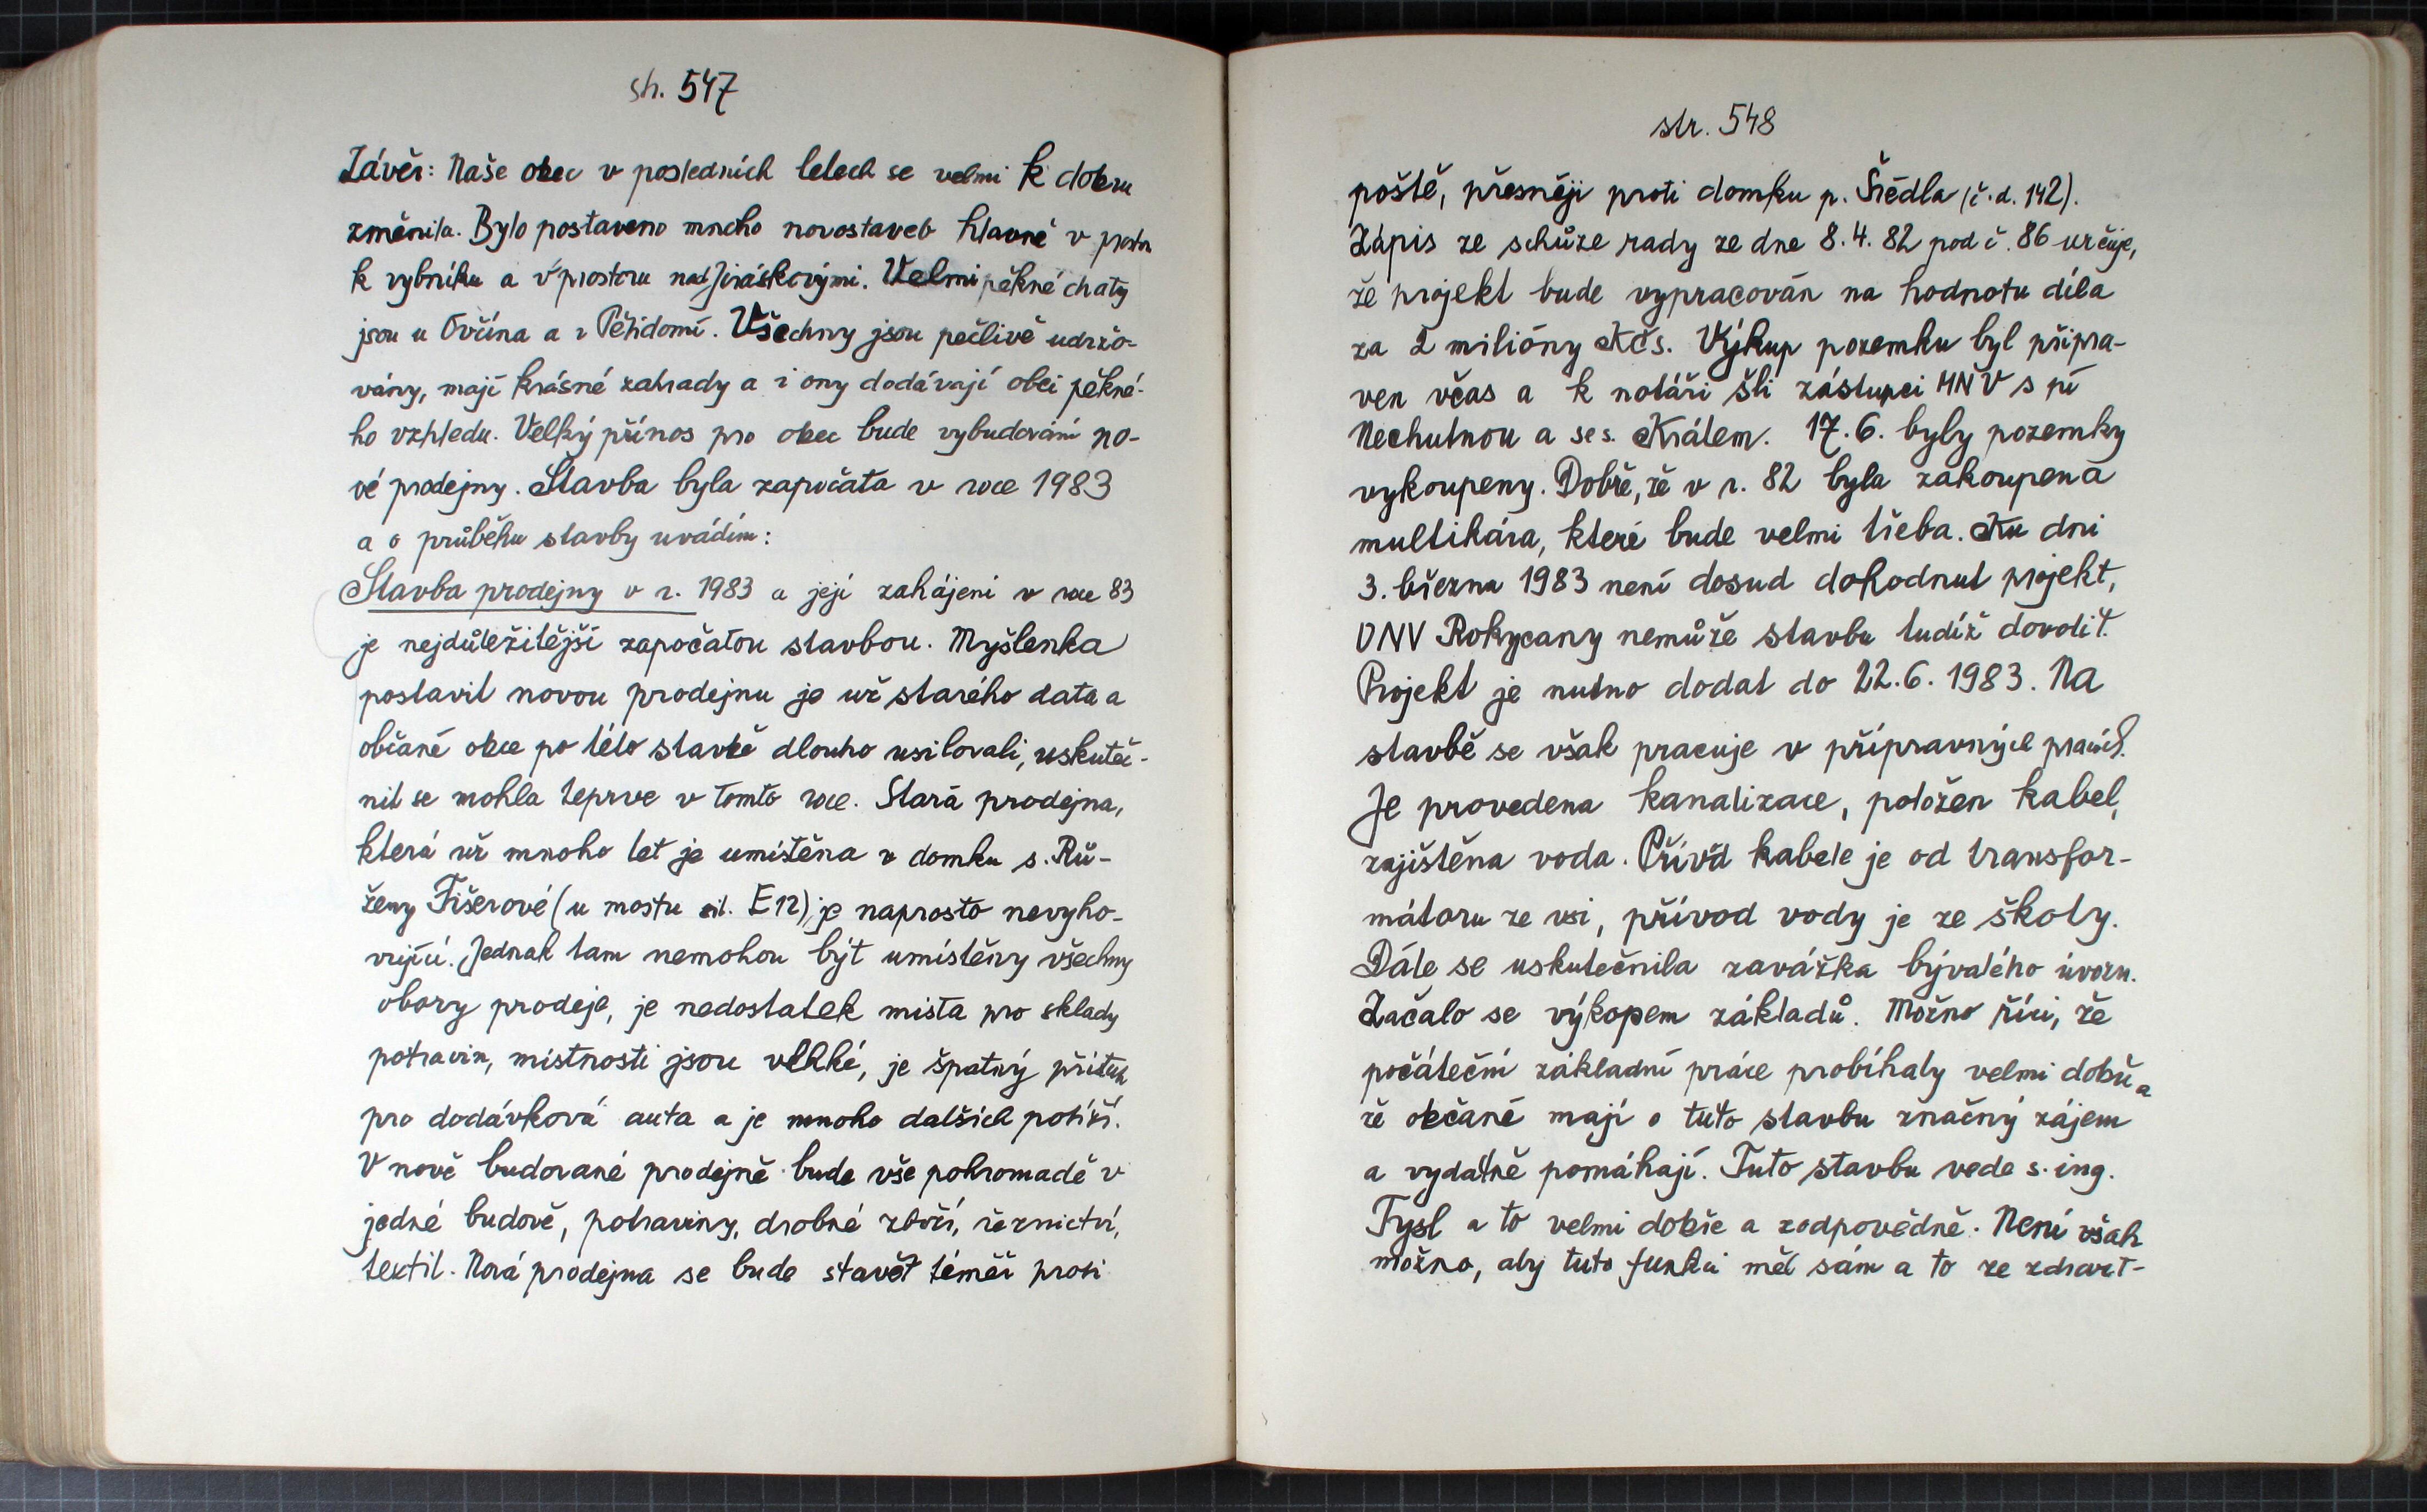 str. 547
Závěr: Naše obec v posledních letech se velmi k dobru
změnila. Bylo postaveno mnoho novostaveb hlavně v prostoru
k rybníku a v prostoru nad Jiráskovými. Velmi pěkné chaty
jsou u Ovčína a v Pětidomí. Všechny jsou pečlivě udržo-
vány, mají krásné zahrady a i ony dodávají obci pěkné-
ho vzhledu. Velký přínos pro obec bude vybudování no-
vé prodejny. Stavba byla započata v roce 1983
a o průběhu stavby uvádím:
Stavba prodejny v r. 1983 a její zahájení v roce 83
je nejdůležitější započatou stavbou. Myšlenka
postavit novou prodejnu je už starého data a
občané obce po této stavbě dlouho usilovali, uskuteč-
nit se mohla teprve v tomto roce. Stará prodejna,
která už mnoho let je umístěna v domku s. Rů-
ženy Fišerové (u mostu sil. E12) je naprosto nevyho-
vující. Jednak tam nemohou být umístěny všechny
obory prodeje, je nedostatek místa pro sklady
potravin, místnosti jsou vlhké, je špatný přístup
pro dodávková auta a je mnoho dalších potíží.
V nově budované prodejně bude vše pohromadě v
jedné budově, potraviny, drobné zboží, řeznictví,
textil. Nová prodejna se bude stavět téměř proti
str. 548
poště, přesněji proti domku p. Šiédla (č.d. 142).
Zápis ze schůze rady ze dne 8.4.82 pod č. 86 určuje,
že projekt bude vypracován na hodnotu díla
za 2 milióny Kčs. Výkup pozemku byl připra-
ven včas a k notáři šli zástupci MNV s pí
Nechutnou a se s. Králem. 17.6. byly pozemky
vykoupeny. Dobře, že v r. 82 byla zakoupena
multikára, které bude velmi třeba. Ku dni
3. března 1983 není dosud dohodnut projekt,
ONV Rokycany nemůže stavbu tudíž dovolit.
Projekt je nutno dodat do 22.6.1983. Na
stavbě se však pracuje v přípravných pracích.
Je provedena kanalizace, položen kabel,
zajištěna voda. Přívod kabele je od transfor-
mátoru ze vsi, přívod vody je ze školy.
Dále se uskutečnila zavážka bývalého úvozu.
Začalo se výkopem základů. Možno říci, že
počáteční základní práce probíhaly velmi dobře a
že občané mají o tuto stavbu značný zájem
a vydatně pomáhají. Tuto stavbu vede s. ing.
Tysl a to velmi dobře a zodpovědně. Není však
možno, aby tuto funkci měl sám a to ze zdravot-